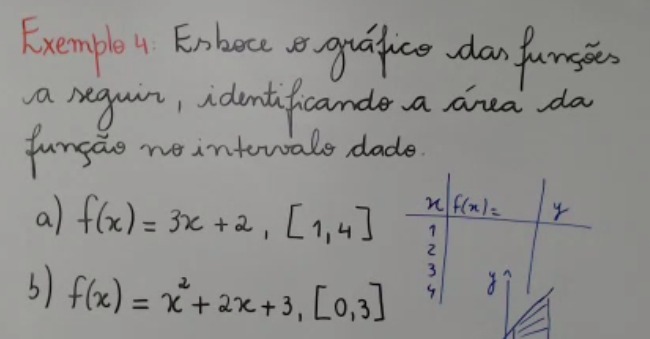 Exemplo 4: Esboce o gráfico das funções
a seguir, identificando a área da
função no intervalo dado.
x f(x)= y
a) f(x) = 3x + 2, [1,4]
1
2
3
4
b) f(x) = x² + 2x + 3, [0,3]
y